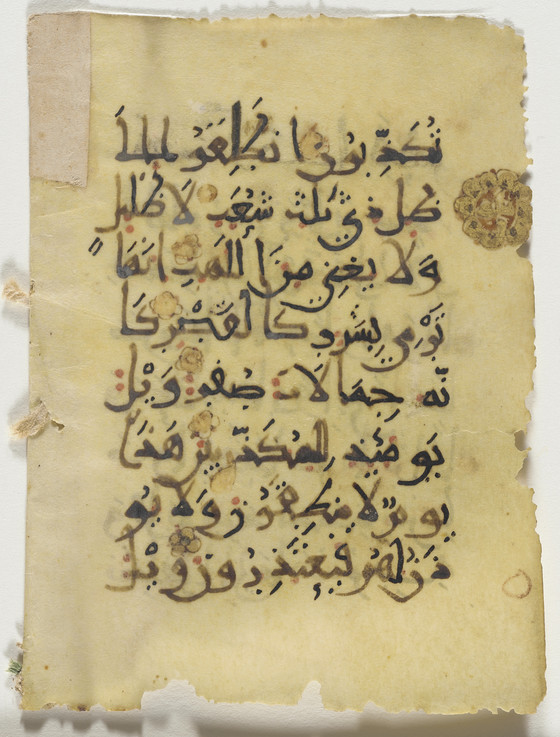 تُكَذِّبُونَ انطلقوا إلى
ظل ذي ثلث شعب لا ظليل
ولا يغني من اللهب انها
ترمي بشرر كالقصر كا
نه جمالات صفر ويل
يومئذ للمكذبين هذا
يوم لا ينطقون ولا يو
ذن لهم فيعتذرون ويل